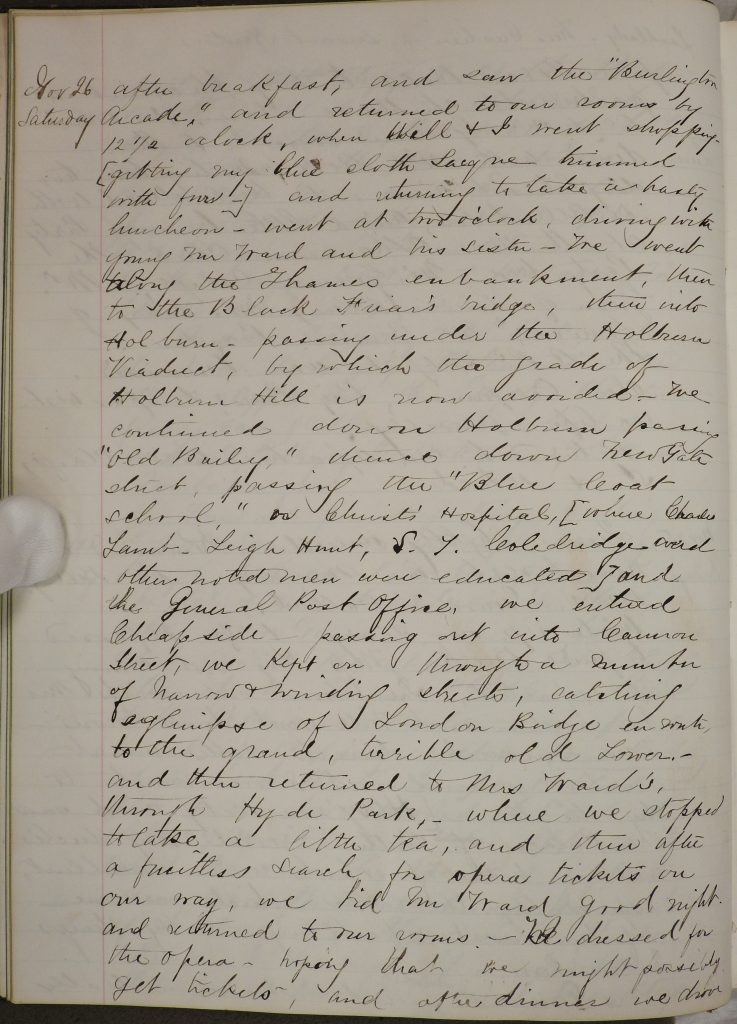 Nov 26
Saturday
after breakfast, and saw the "Burlington
Arcade," and returned to our rooms by
12 1/2 o'clock, when Will & I went shopping -
[getting my blue cloth Sacque trimmed
with furs -] and returning to take a hasty
luncheon - went at two o'clock, driving with
young Mr Ward and his sister - We went
along the Thames embankment, then
to the Black Friar's bridge, then into
Holburn - passing under the Holburn
Viaduct, by which the grade of
Holburn Hill is now avoided - We
continued down Holburn passing
"Old Bailey," thence down New Gate
street, passing the "Blue Coat
school," or Christ's Hospital, [where Charles
Lamb - Leigh Hunt, S. T. Coledridge and
other noted men were educated] and
the General Post Office, we entered
Cheapside - passing out into Cannon
Street, we kept on through a number
of narrow & winding streets, catching
a glimpse of London Bridge en route,
to the grand, terrible old Tower. -
and then returned to Mrs Ward's,
through Hyde Park, - where we stopped
to take a little tea, and then after
a fruitless search for opera tickets on
our way, we bid Mr Ward good night -
and returned to our rooms. - We dressed for
the opera - hoping that we might possibly
get tickets, and after dinner we drove